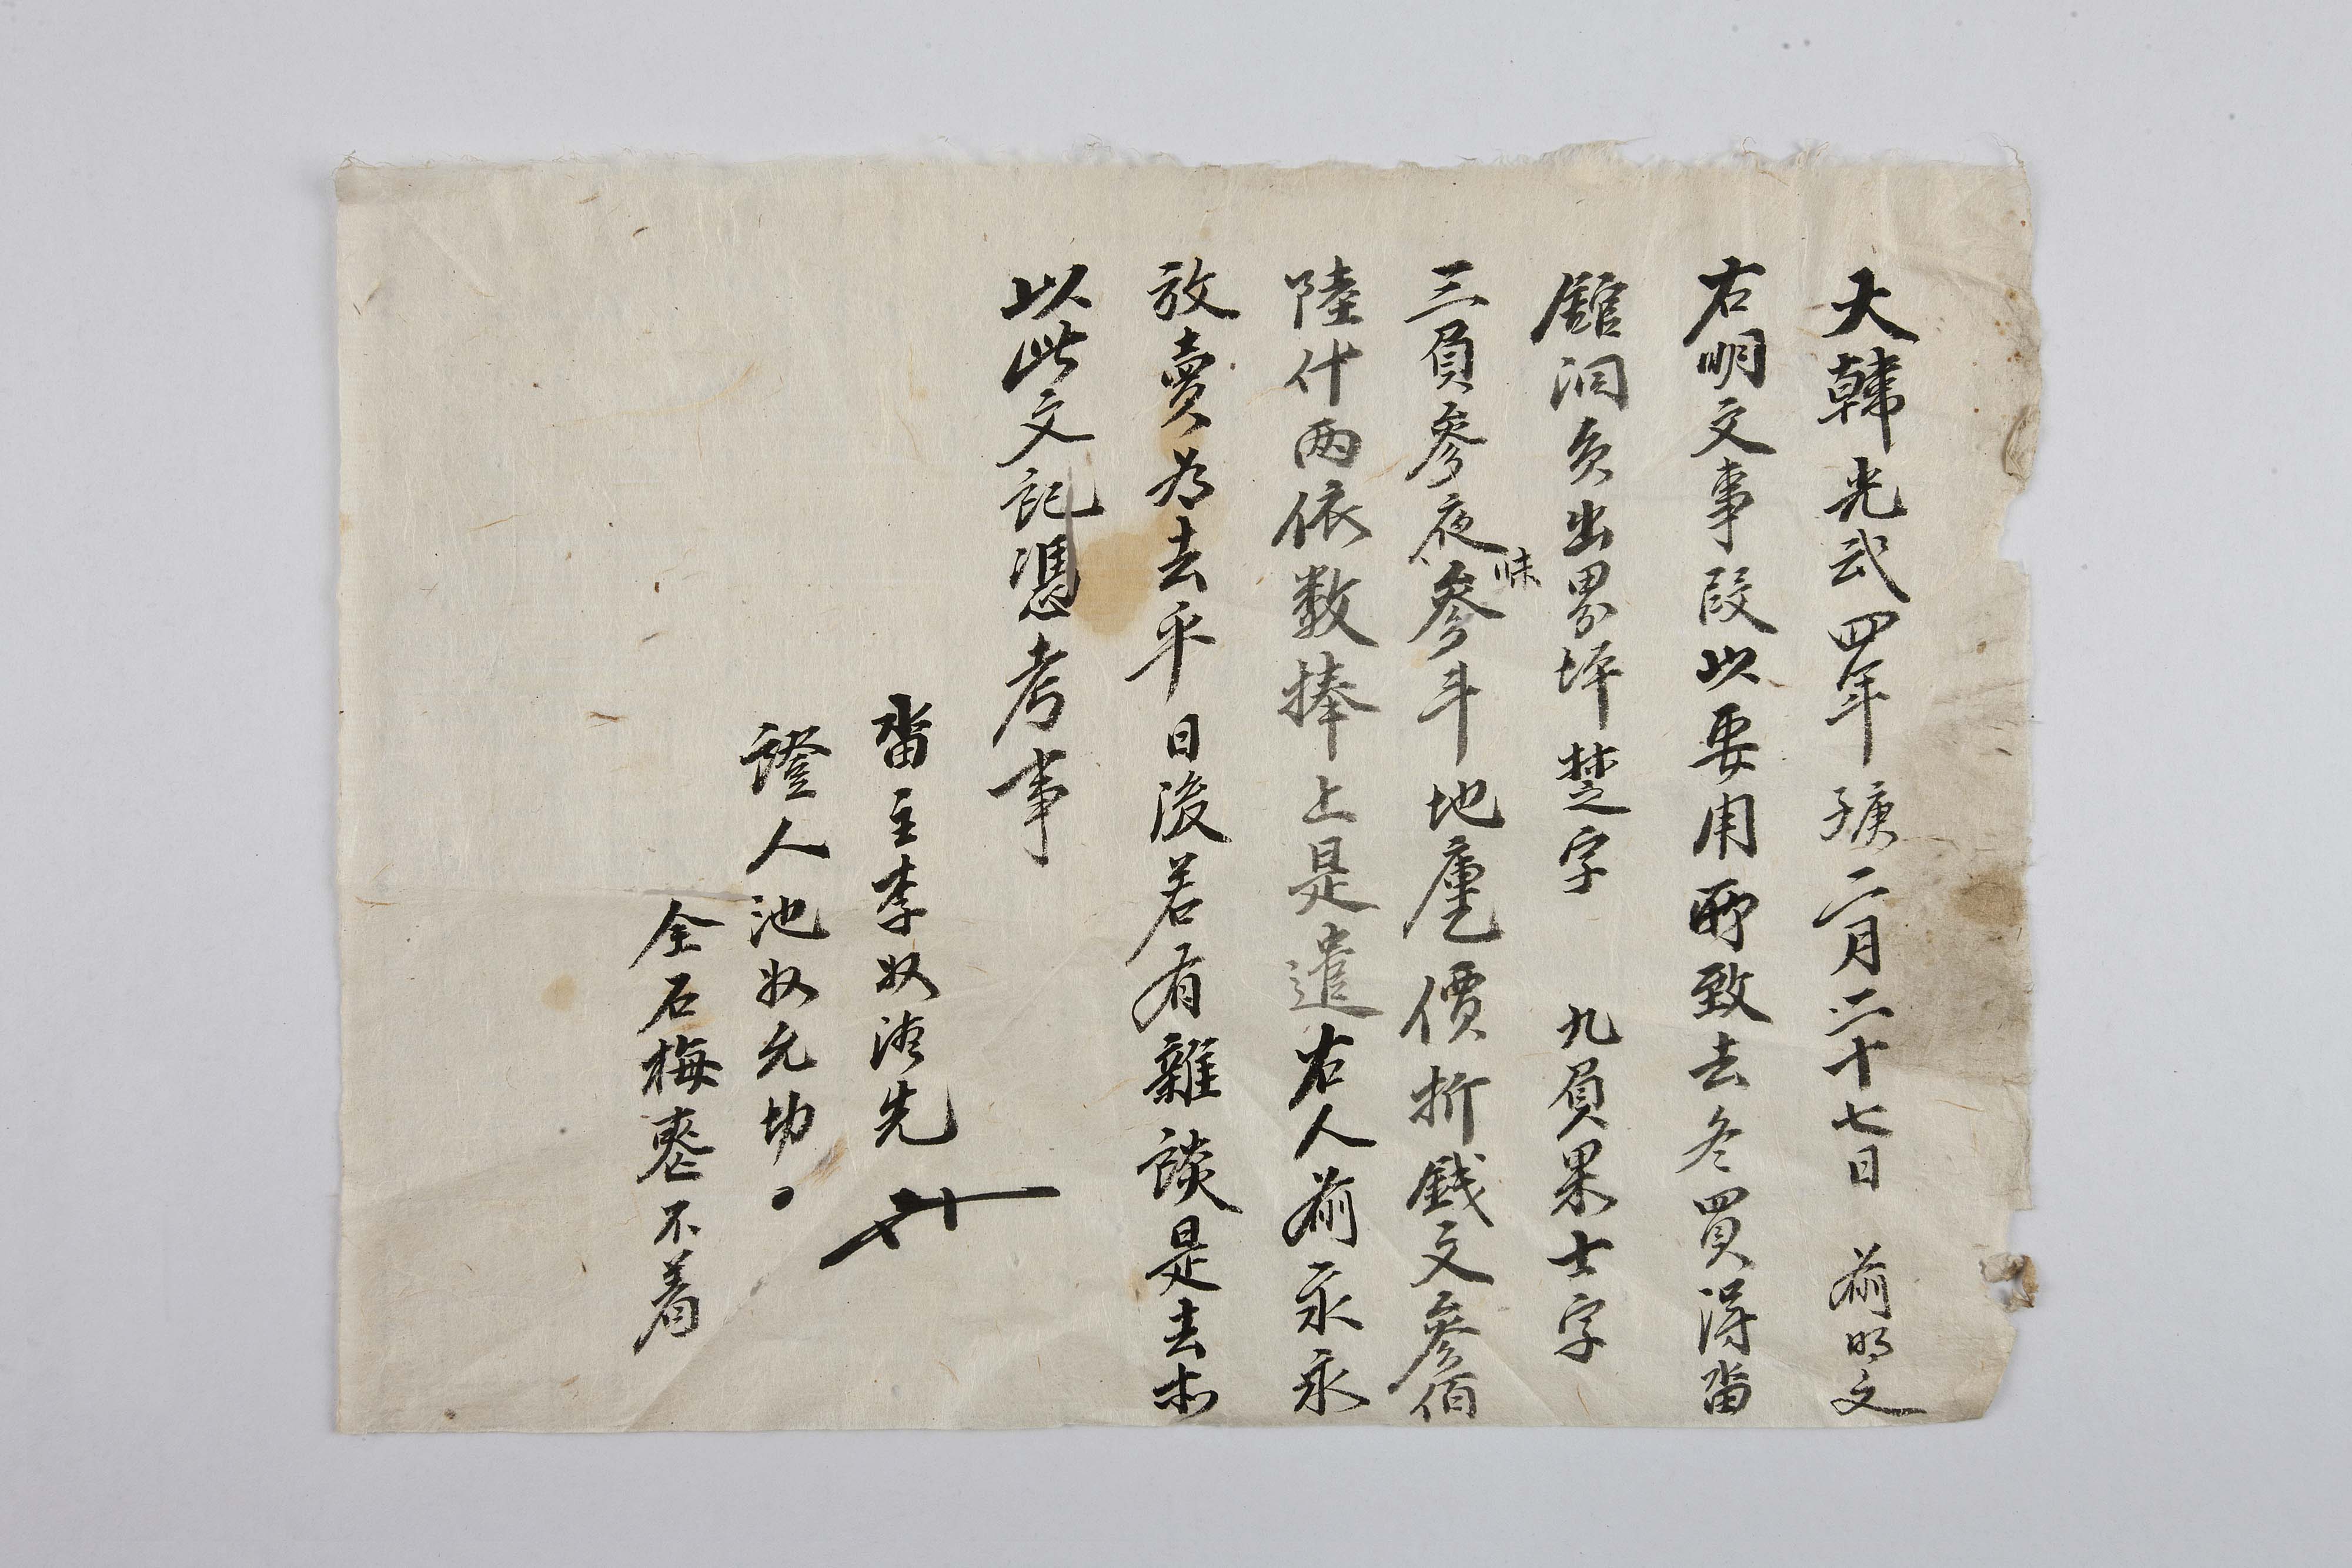 大韓光武四年庚子二月二十七日 前明文
右明文事段以要用所致去冬買得畓
館洞員出界坪楚字 九負果士字
三負參夜味參斗地庫價折錢文參佰
陸什两依数捧上是遣右人前永永
放賣爲去乎日後若有雜談是去木
以此文記憑考事
畓主李奴済先
證人池奴允功
金石梅 不着